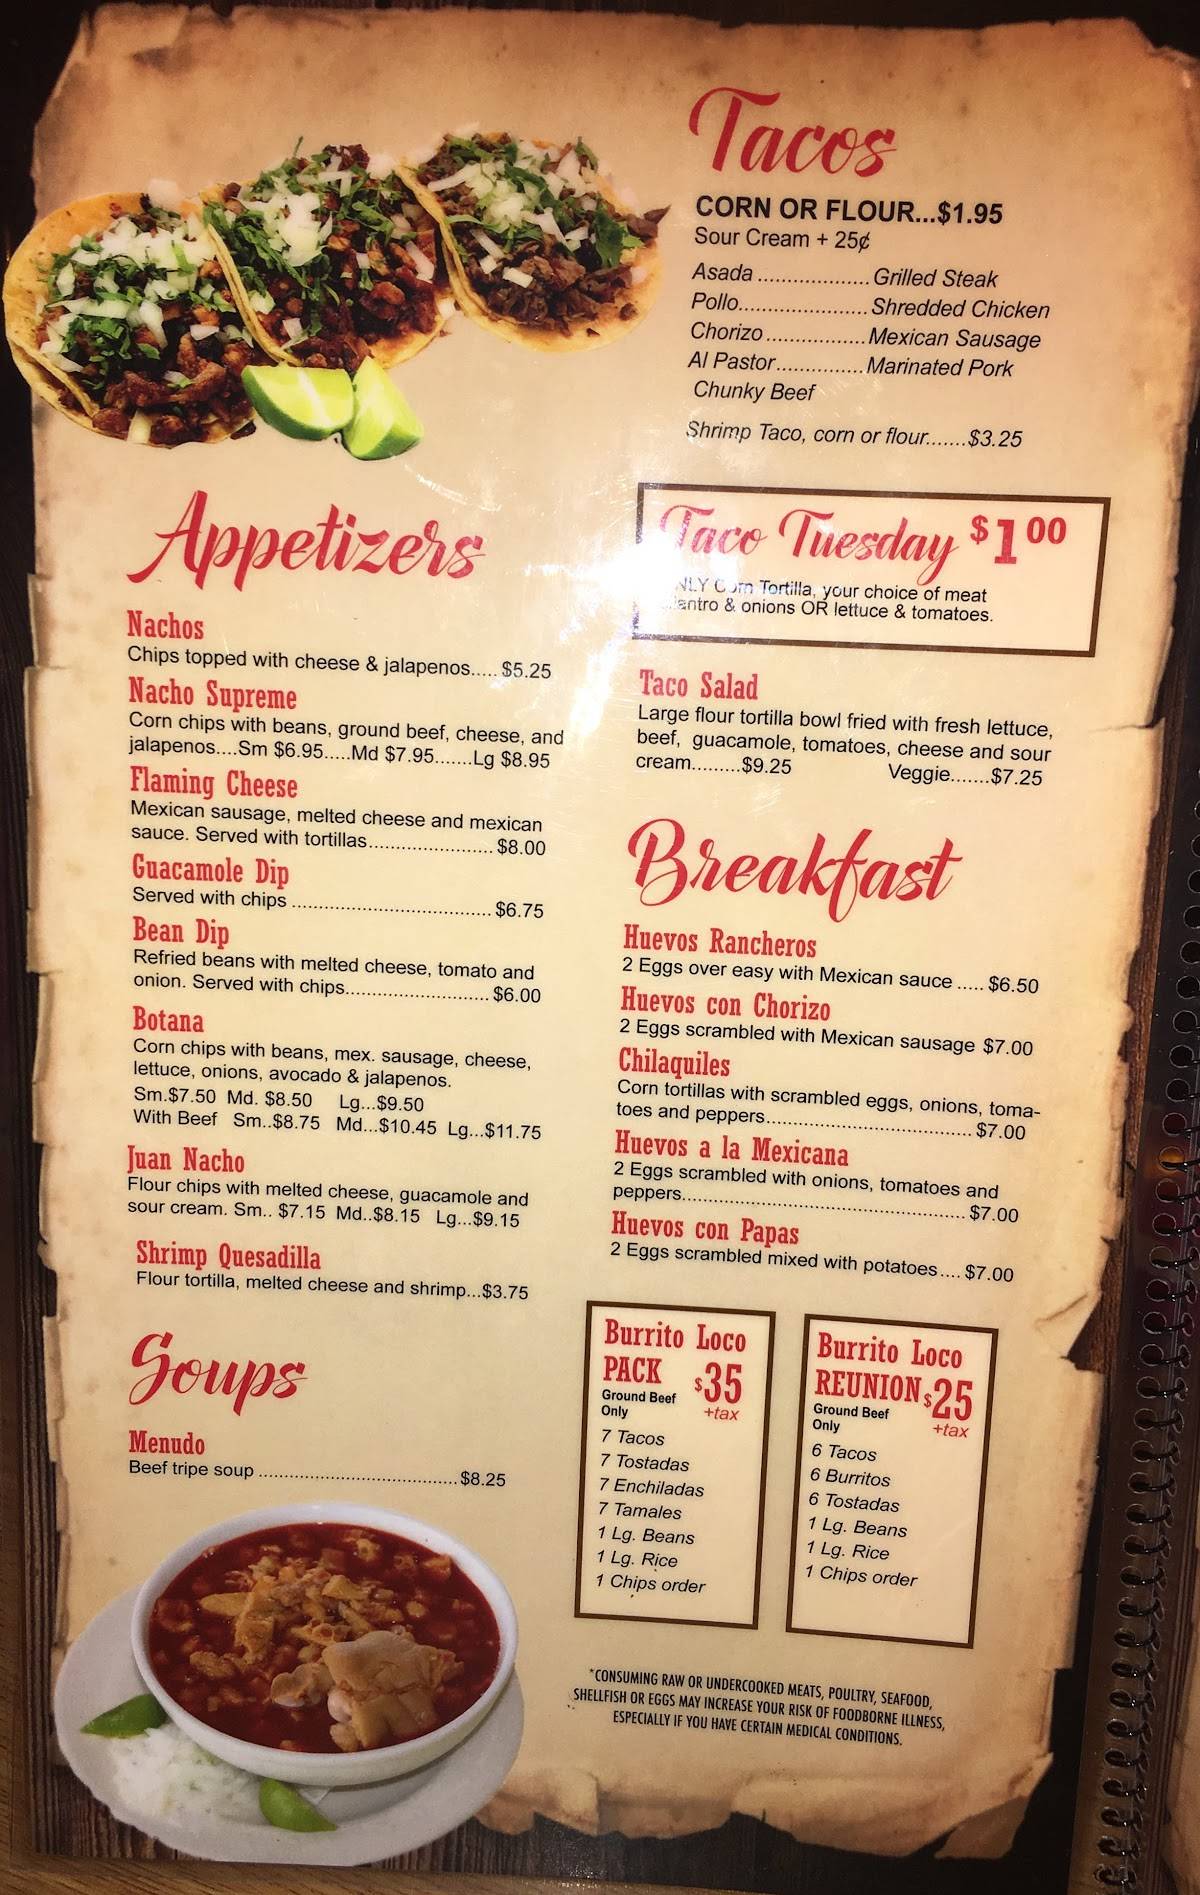 Tacos
CORN OR FLOUR...$1.95
Sour Cream + 25¢
Asada ....................Grilled Steak
Pollo.......................Shredded Chicken
Chorizo..................Mexican Sausage
Al Pastor................Marinated Pork
Chunky Beef
Shrimp Taco, corn or flour.......$3.25
Taco Tuesday $1 00
Corn Tortilla, your choice of meat
& onions OR lettuce & tomatoes.
Taco Salad
Large flour tortilla bowl fried with fresh lettuce,
beef, guacamole, tomatoes, cheese and sour
cream.........$9.25 Veggie.......$7.25
Appetizers
Nachos
Chips topped with cheese & jalapenos..... $5.25
Nacho Supreme
Corn chips with beans, ground beef, cheese, and
jalapenos....Sm $6.95.....Md $7.95.......Lg $8.95
Flaming Cheese
Mexican sausage, melted cheese and mexican
sauce. Served with tortillas....................... $8.00
Guacamole Dip
Served with chips ..................................... $6.75
Bean Dip
Refried beans with melted cheese, tomato and
onion. Served with chips........................... $6.00
Botana
Corn chips with beans, mex. sausage, cheese,
lettuce, onions, avocado & jalapenos.
Sm.$7.50 Md. $8.50 Lg...$9.50
With Beef Sm..$8.75 Md...$10.45 Lg...$11.75
Juan Nacho
Flour chips with melted cheese, guacamole and
sour cream. Sm.. $7.15 Md..$8.15 Lg...$9.15
Shrimp Quesadilla
Flour tortilla, melted cheese and shrimp...$3.75
Soups
Menudo
Beef tripe soup .....................................$8.25
Breakfast
Huevos Rancheros
2 Eggs over easy with Mexican sauce ..... $6.50
Huevos con Chorizo
2 Eggs scrambled with Mexican sausage $7.00
Chilaquiles
Corn tortillas with scrambled eggs, onions, toma-
toes and peppers...................................... $7.00
Huevos a la Mexicana
2 Eggs scrambled with onions, tomatoes and
peppers..................................................... $7.00
Huevos con Papas
2 Eggs scrambled mixed with potatoes.... $7.00
Burrito Loco
PACK $35
Ground Beef
Only +tax
7 Tacos
7 Tostadas
7 Enchiladas
7 Tamales
1 Lg. Beans
1 Lg. Rice
1 Chips order
Burrito Loco
REUNION $25
Ground Beef
Only +tax
6 Tacos
6 Burritos
6 Tostadas
1 Lg. Beans
1 Lg. Rice
1 Chips order
*CONSUMING RAW OR UNDERCOOKED MEATS, POULTRY, SEAFOOD,
SHELLFISH OR EGGS MAY INCREASE YOUR RISK OF FOODBORNE ILLNESS,
ESPECIALLY IF YOU HAVE CERTAIN MEDICAL CONDITIONS.